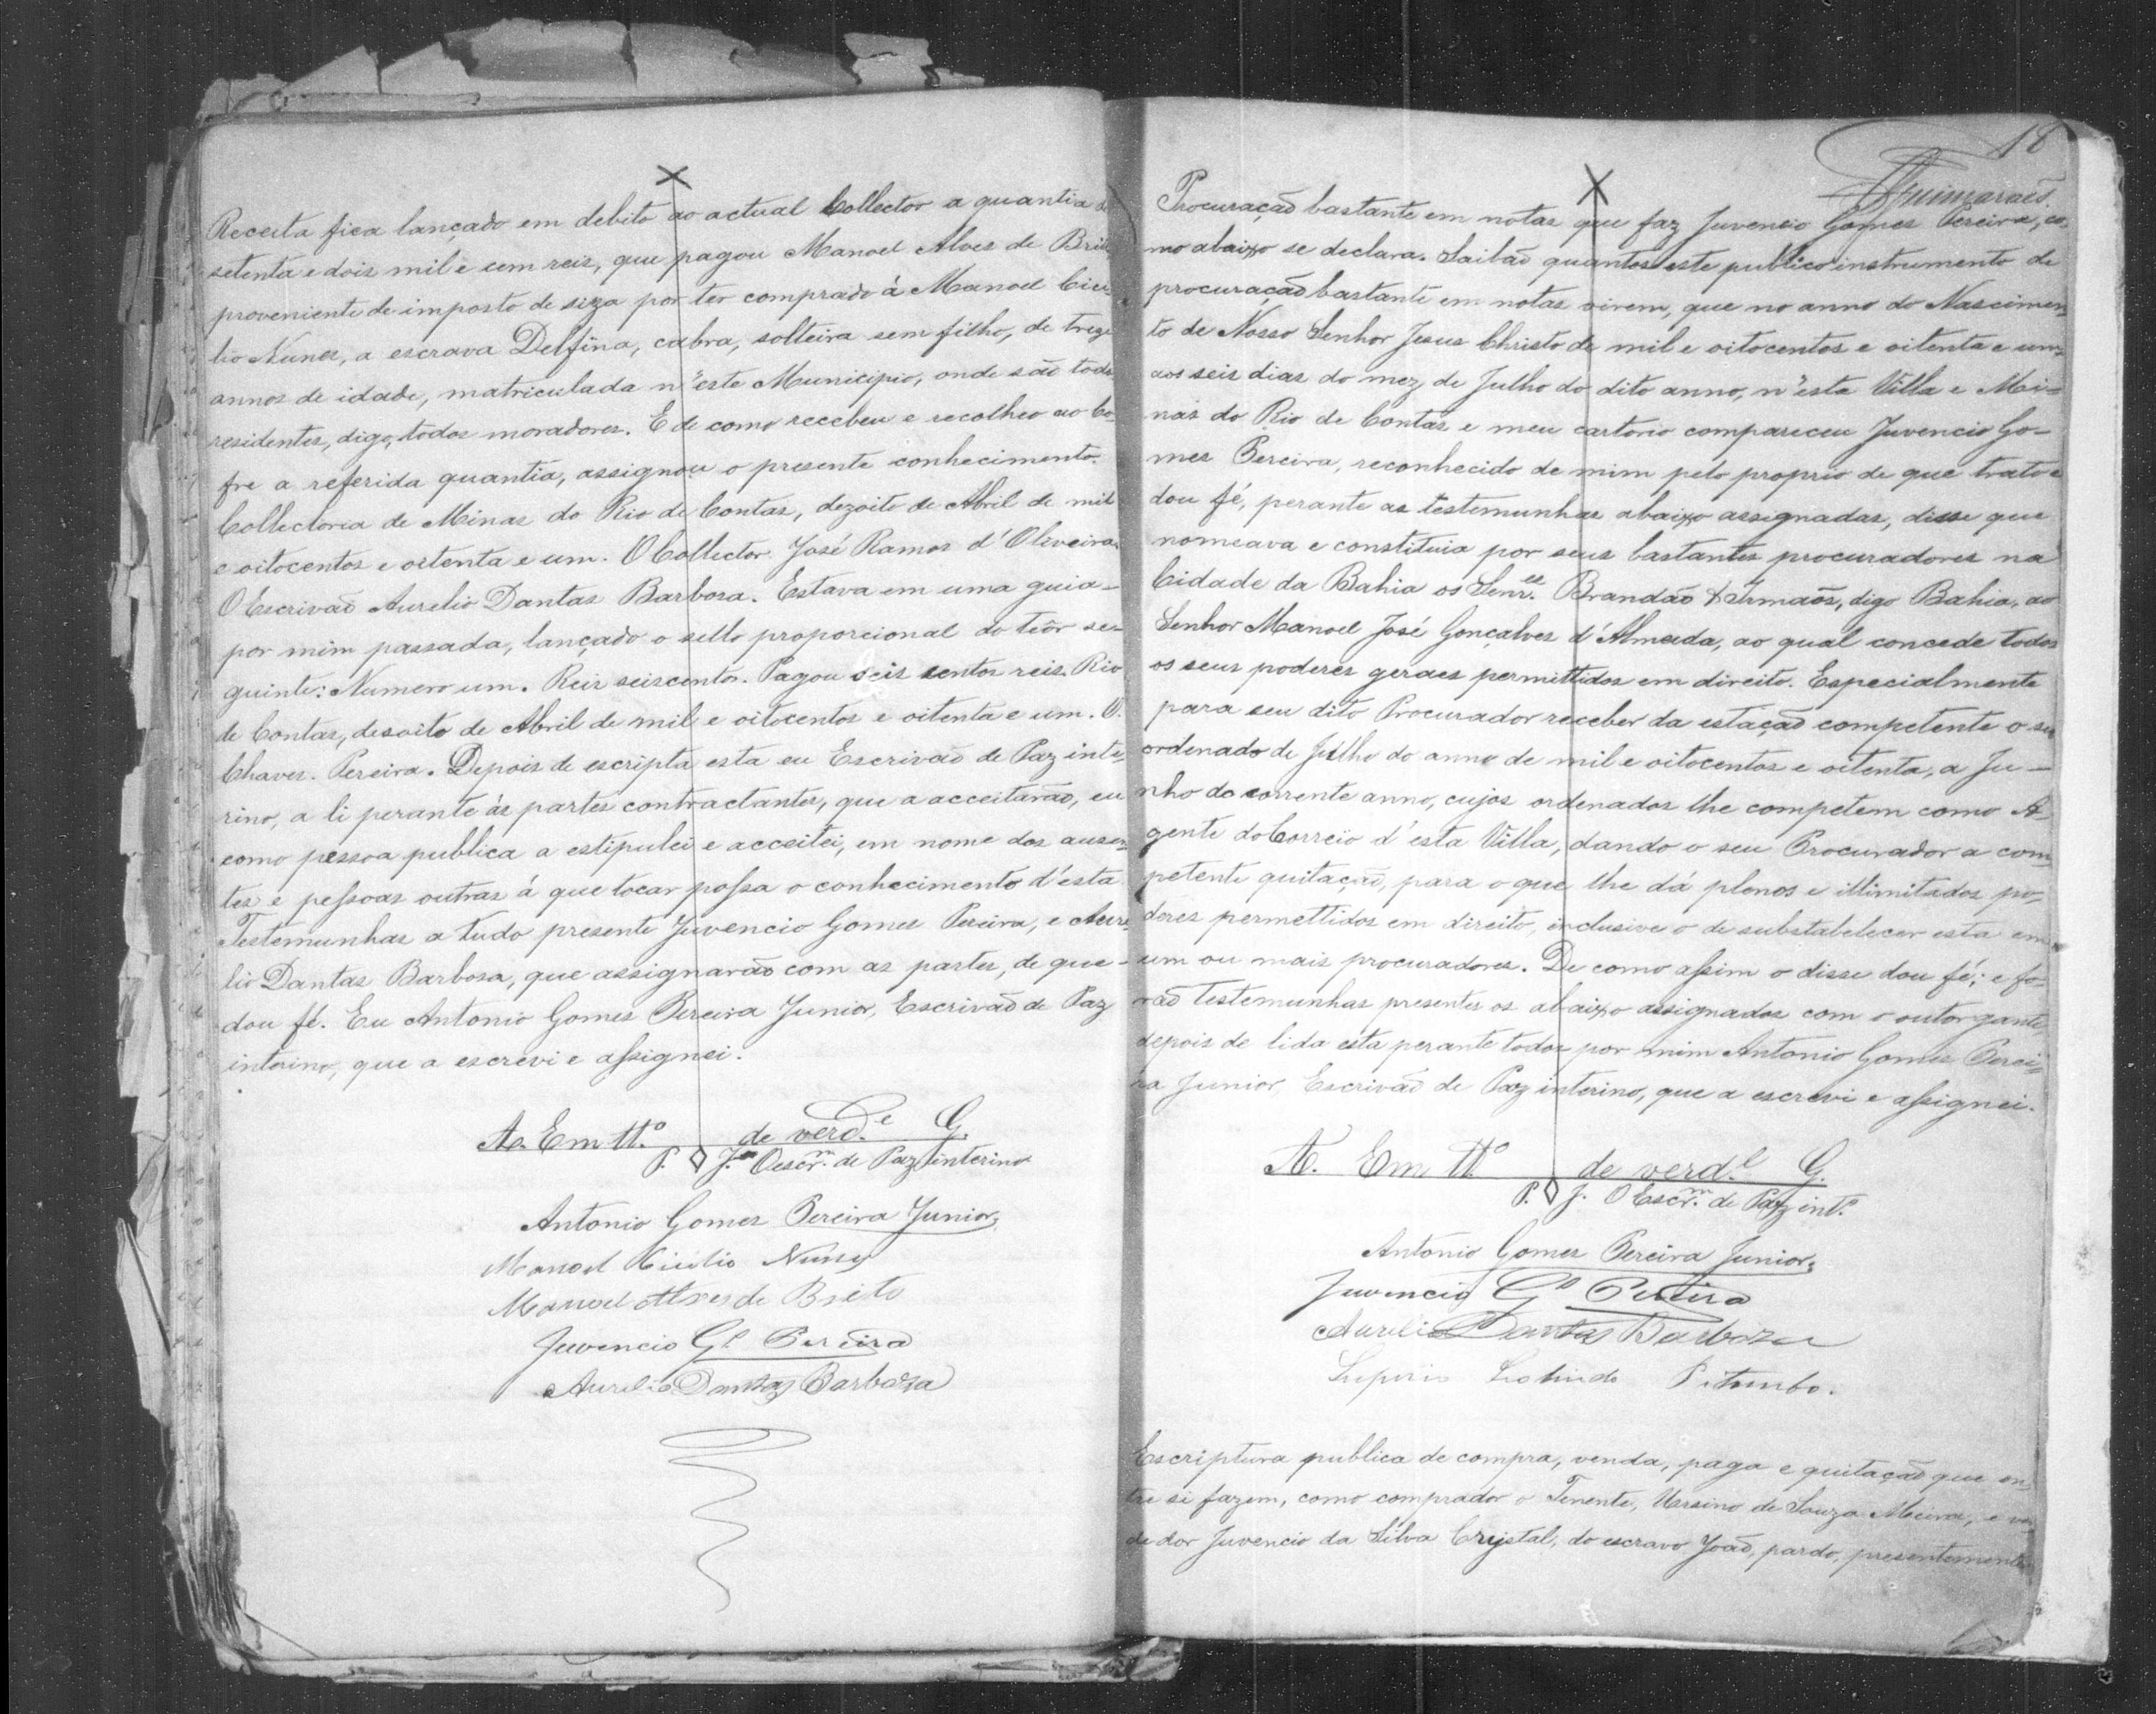 Receita fica lançado em debito ao actual Collector a quantia de
setenta e dois mil e cem reis, que pagou Manoel Alves de Brito
proveniente de imposto de siza por ter comprado á Manoel Cici-
lio Nunes, a escrava Delfina, cabra, solteira sem filho, de treze
annos de idade, matriculada n'este Municipio, onde são todos
residentes, digo, todos moradores. E de como recebeu e recolheo ao Co-
fre a referida quantia, assignou o presente conhecimento.
Collectoria de Minas do Rio de Contas, dezoito de Abril de mil
e oitocentos e oitenta e um. O Collector José Ramos d'Oliveira.
O Escrivaõ Aurelio Dantas Barbosa. Estava em uma guia-
por mim passada, lançado o sello proporcional do teôr se-
guinte: Numero um. Reis seiscentos. Pagou seis centos reis. Rio
de Contas, desoito de Abril de mil e oitocentos e oitenta e um. O.
Chaves. Pereira. Depois de escripta esta eu Escrivaõ de Paz inte-
rino, a li perante ás partes contractantes, que a acceitaraõ, eu
como pessoa publica a estipulei e acceitei, em nome dos ausen-
tes e pessoas outras á que tocar possa o conhecimento d'esta
Testemunhas a tudo presente Juvencio Gomes Pereira, e Aure-
lio Dantas Barbosa, que assignaraõ com as partes, de que-
dou fé. Eu Antonio Gomes Pereira Junior, Escrivaõ de Paz
interino, que a escrevi e assignei.
A. Em tt.º de verd.e G.
P. J.or O escr.m de Paz interino
Antonio Gomes Pereira Junior,
Manoel Cicilio Nunes
Manoel Alves de Brito
Juvencio G.s Pereira
Aurelio Dantas Barboza
18
Guimarães.
Procuraçaõ bastante em notas que faz Juvencio Gomes Pereira, co-
mo abaixo se declara. Saibaõ quantos este publico instrumento de
procuraçaõ bastante em notas virem, que no anno do Nascimen-
to de Nosso Senhor Jesus Christo de mil e oitocentos e oitenta e um,
aos seis dias do mez de Julho do dito anno, n'esta Villa e Mi-
nas do Rio de Contas e meu cartorio compareceu Juvencio Go-
mes Pereira, reconhecido de mim pelo proprio de que trato e
dou fé, perante as testemunhas abaixo assignadas, disse que
nomeava e constituia por seus bastantes procuradores na
Cidade da Bahia os Senr.es Brandão & Irmaõs, digo Bahia, ao
Senhor Manoel José Gonçalves d'Almeida, ao qual concede todos
os seus poderes geraes permittidos em direito. Especialmente
para seu dito Procurador receber da estaçaõ competente o seu
ordenado de Julho do anno de mil e oitocentos e oitenta, a Ju-
nho do corrente anno, cujos ordenados lhe competem como A-
gente do Correio d'esta Villa, dando o seu Procurador a com-
petente quitaçaõ, para o que lhe dá plenos e illimitados po-
deres permettidos em direito, inclusive o de substabelecer esta em
um ou mais procuradores. De como assim o disse dou fé; e fo-
raõ testemunhas presentes os abaixo assignados com o outorgante,
depois de lida esta perante todos por mim Antonio Gomes Perei-
ra Junior, Escrivaõ de Paz interino, que a escrevi e assignei.
A. Em tt.º de verd.e G.
P. J. O Escr.m de Paz int.º
Antonio Gomes Pereira Junior,
Juvencio G.s Pereira
Aurelio Dantas Barboza
Pitumbo.
Escriptura publica de compra, venda, paga e quitaçaõ que en-
tre si fazem, como comprador o Tenente, Ursino de Souza Meira, e ven-
dedor Juvencio da Silva Crystal, do escravo Joaõ, pardo, presentemente